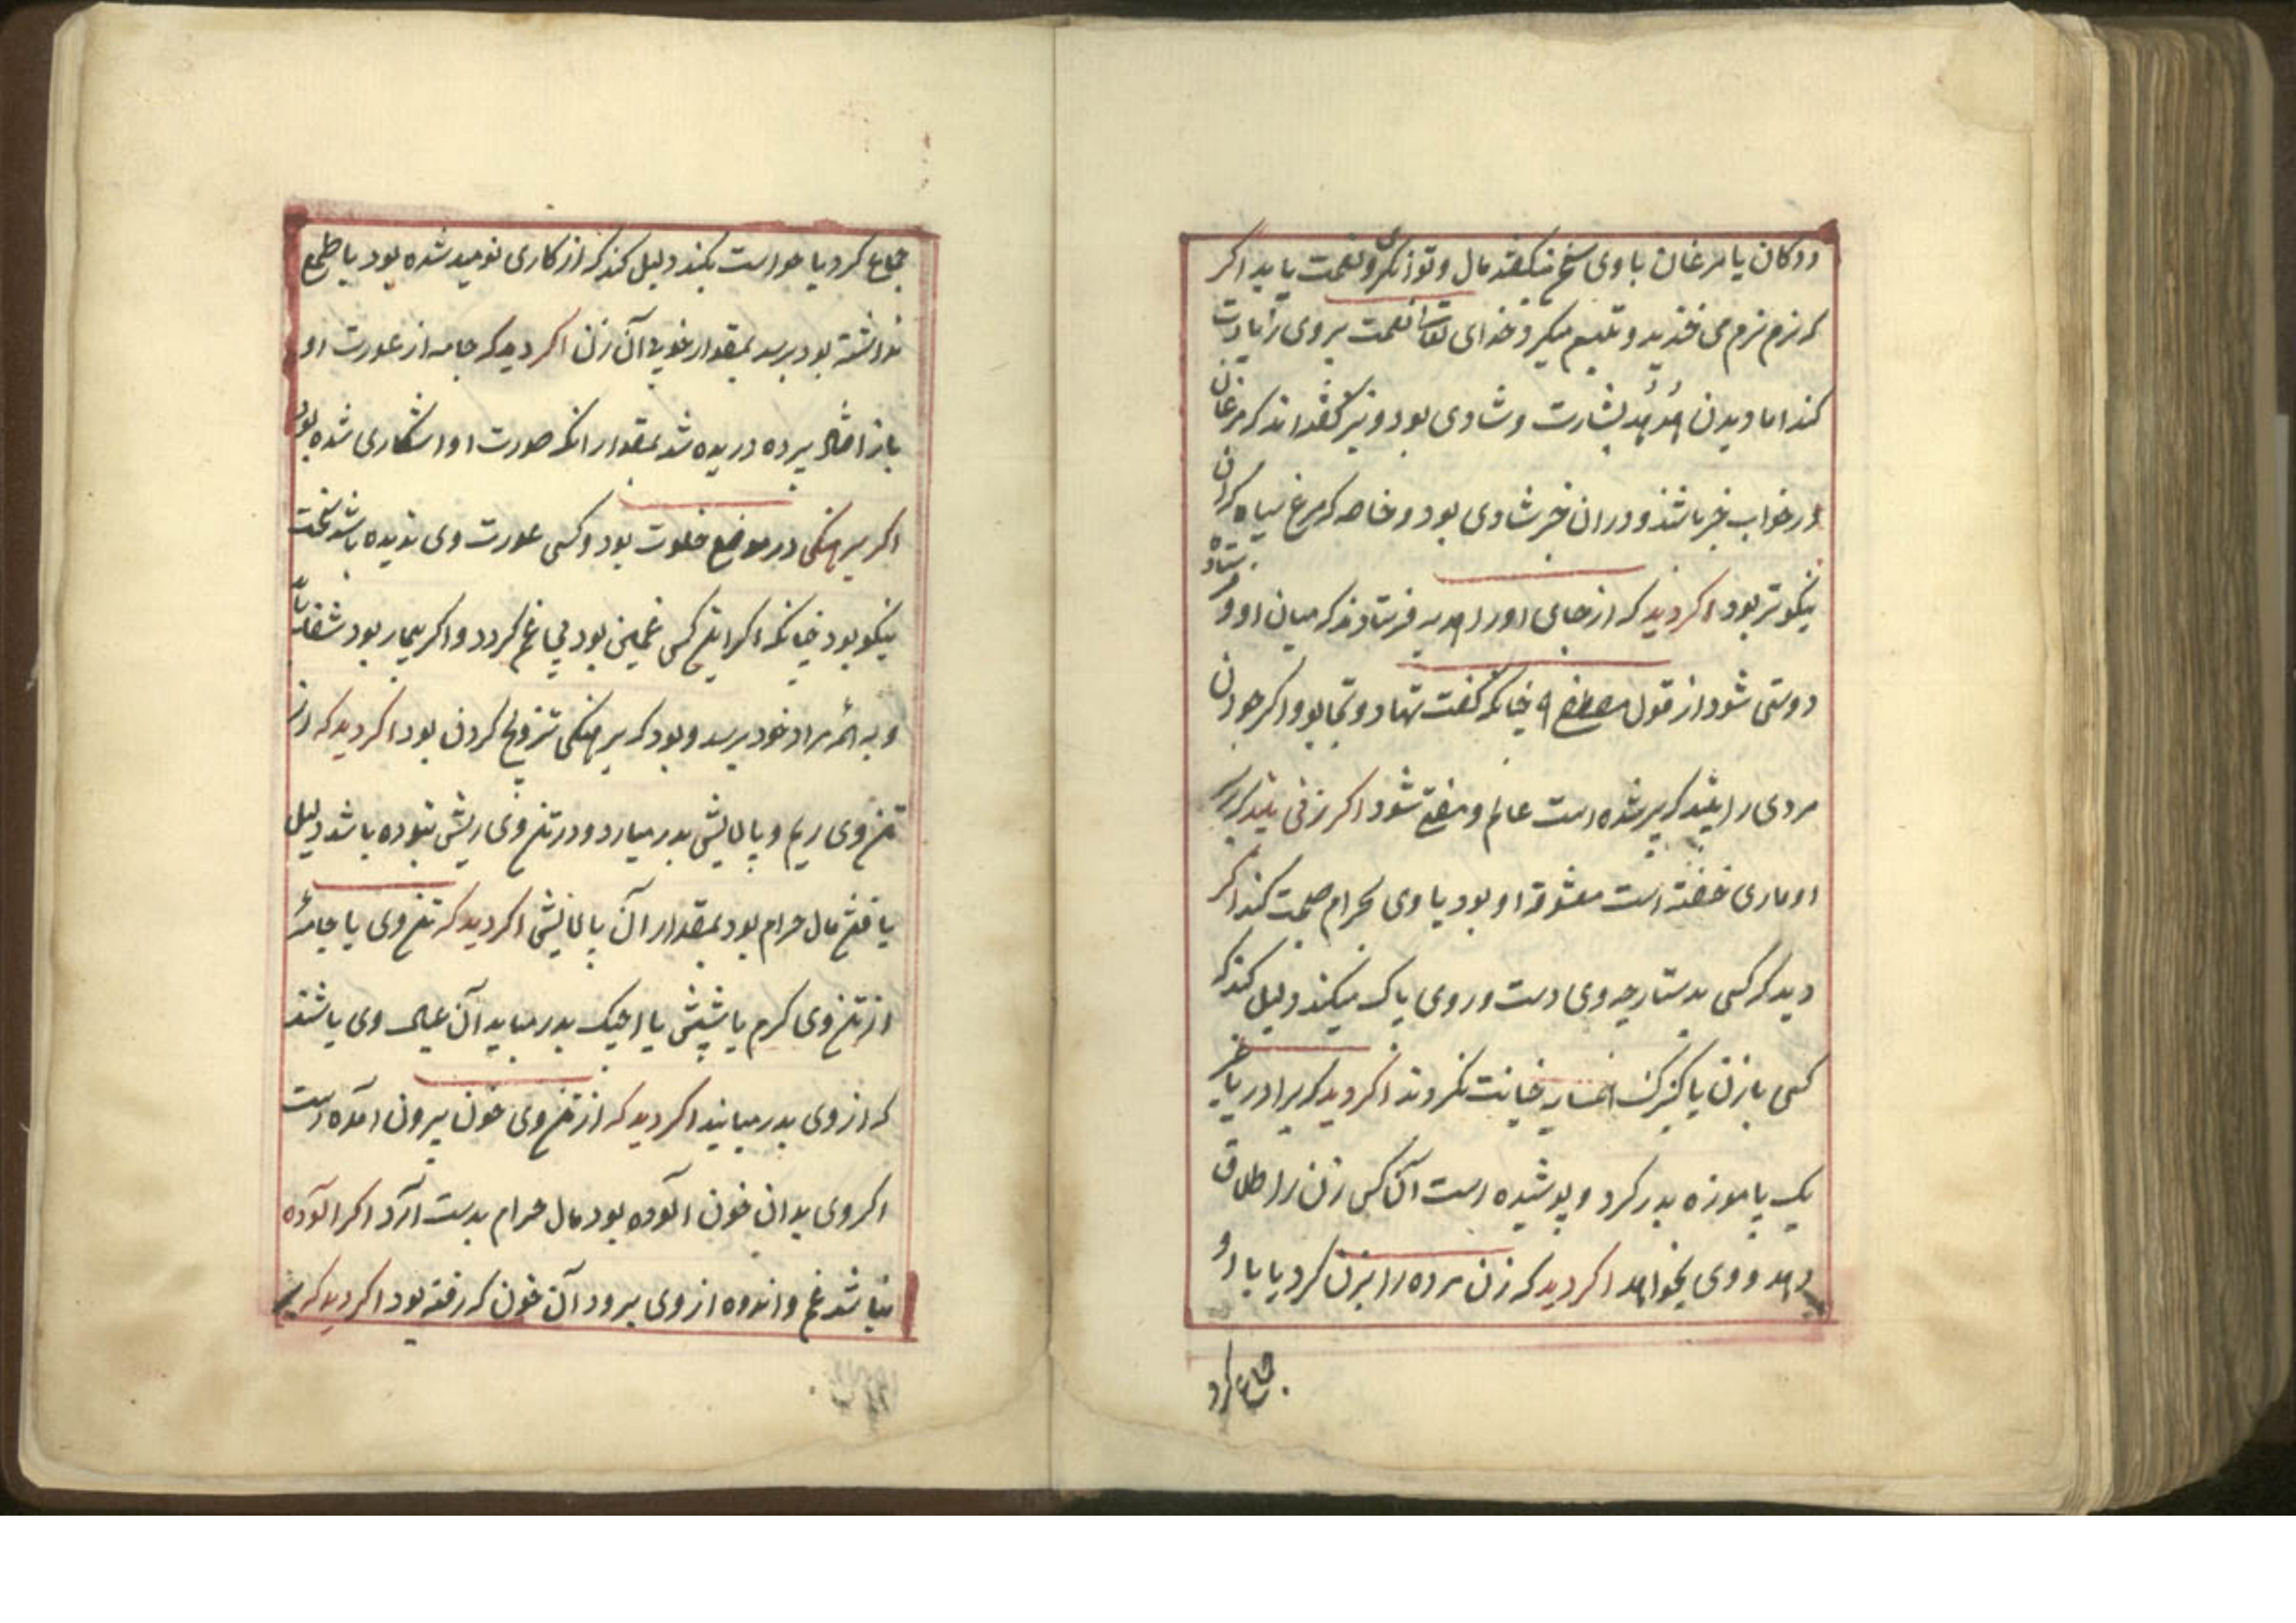 ددکان یا مرغان با وی سخن میکفتند مال و توانکری و نعمت یابد اکر
که نرم نرم می خندید و تبسم میکرد خدای تعالی نعمت بر وی زیادت
کند اما دیدن هُدهُد بشارت و شادی بود و نیز کفته‌اند که مرغان
در خواب خبر باشند و در ان خبر شادی بود و خاصه که مرغ سیاه کران
نیکوتر بود اکر دید که از جای او را هدیه فرستادند که میان او و فرستاده
دوستی شود از قول مصطفی چنانکه کفت تهادو تحابوا و اکر جودان
مردی را بیند که پیر شده است عالم و مفتی شود اکر زنی بیند که بر
او ماری خفته است معشوقه او بود با وی بحرام صحبت کند اکر
دید که کسی بدستارچه وی دست و روی پاک میکند دلیل کند که
کسی با زن یا کنیزک همسایه خیانت نکردند اکر دید که برادر یا غیر
یک پا موزه بدر کرد و پوشیده است آن کس زن را طلاق
دهد و وی بخواهد اکر دید که زن مرده را بزن کرد یا با او
جماع کرد
جماع کرد یا خواست بکند دلیل کند که از کاری نومید شده بود یا طمع
نداشته بود برسد بمقدار خوبی آن زن اکر دید که جامه از عورت او
باز افتاد پرده دریده شد بمقدار انکه صورت او اشکاری شده بود
اکر برهنکی در موضع خلوت بود و کسی عورت وی ندیده باشد سخت
نیکو بود چنانکه اکر این کس غمکین بود بی غم کردد و اکر بیمار بود شفا یابد
و به همه مراد خود برسد و بود که برهنکی تزویج کردن بود اکر دید که از
تن وی ریم و پالایش بدر میارد و در تن وی ریش نبوده باشد دلیل
یافتن مال حرام بود بمقدار آن پالایش اکر دید که تن وی یا جامه
از تن وی کرم یا شپش یا بدر میاید آن عیال وی باشند
که از وی بدر میایند اکر دید که از تن وی خون بیرون امده است
اکر وی بدان خون آلوده بود مال حرام بدست آرد اکر آلوده
نباشد غم و اندوه از وی برود آن خون که رفته بود اکر دید که